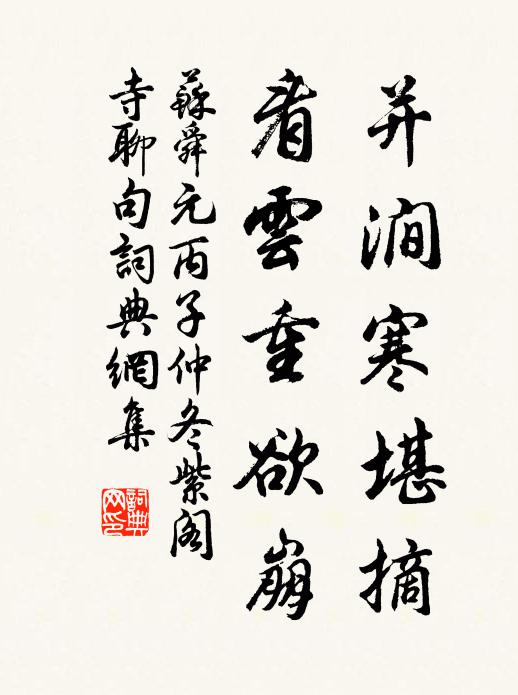 并澗寒堪摘
看雲重欲崩
蘇舜元丙子仲冬紫閣
寺聊句詞典網集
詞典
网印